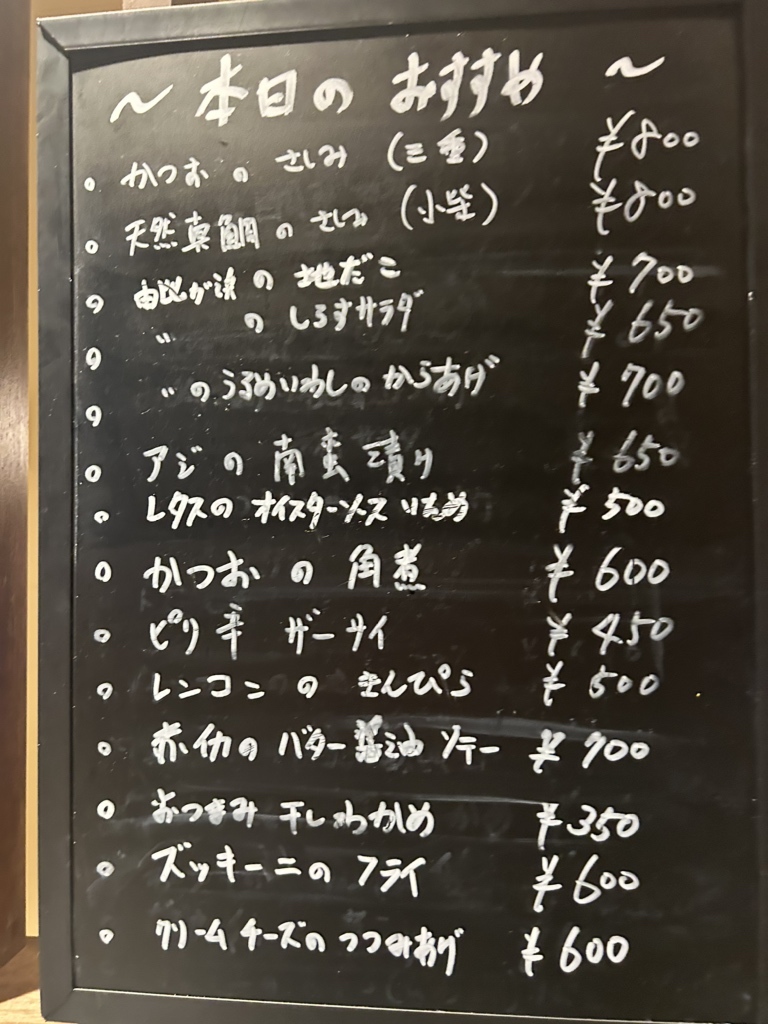 ～ 本日の おすすめ ～
○ かつおのさしみ (三重) ¥800
○ 天然真鯛のさしみ (小柴) ¥800
○ 由比が浜の地だこ ¥700
○ 〃 のしらすサラダ ¥650
○ 〃のうるめいわしのからあげ ¥700
○ アジの南蛮漬け ¥650
○ レタスのオイスターソースいため ¥500
○ かつおの角煮 ¥600
○ ピリ辛ザーサイ ¥450
○ レンコンのきんぴら ¥500
○ 赤イカのバター醤油ソテー ¥700
○ おつまみ干しわかめ ¥350
○ ズッキーニのフライ ¥600
○ クリームチーズのつつみあげ ¥600